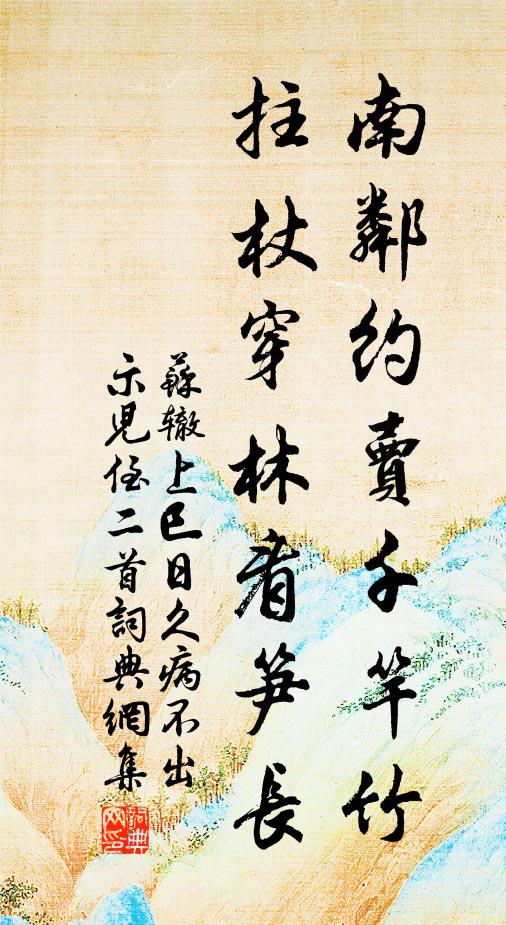 南鄰約賣千竿竹
拄杖穿林看笋長
蘇辙上巳日久病不出
示兒侄二首詞典網集